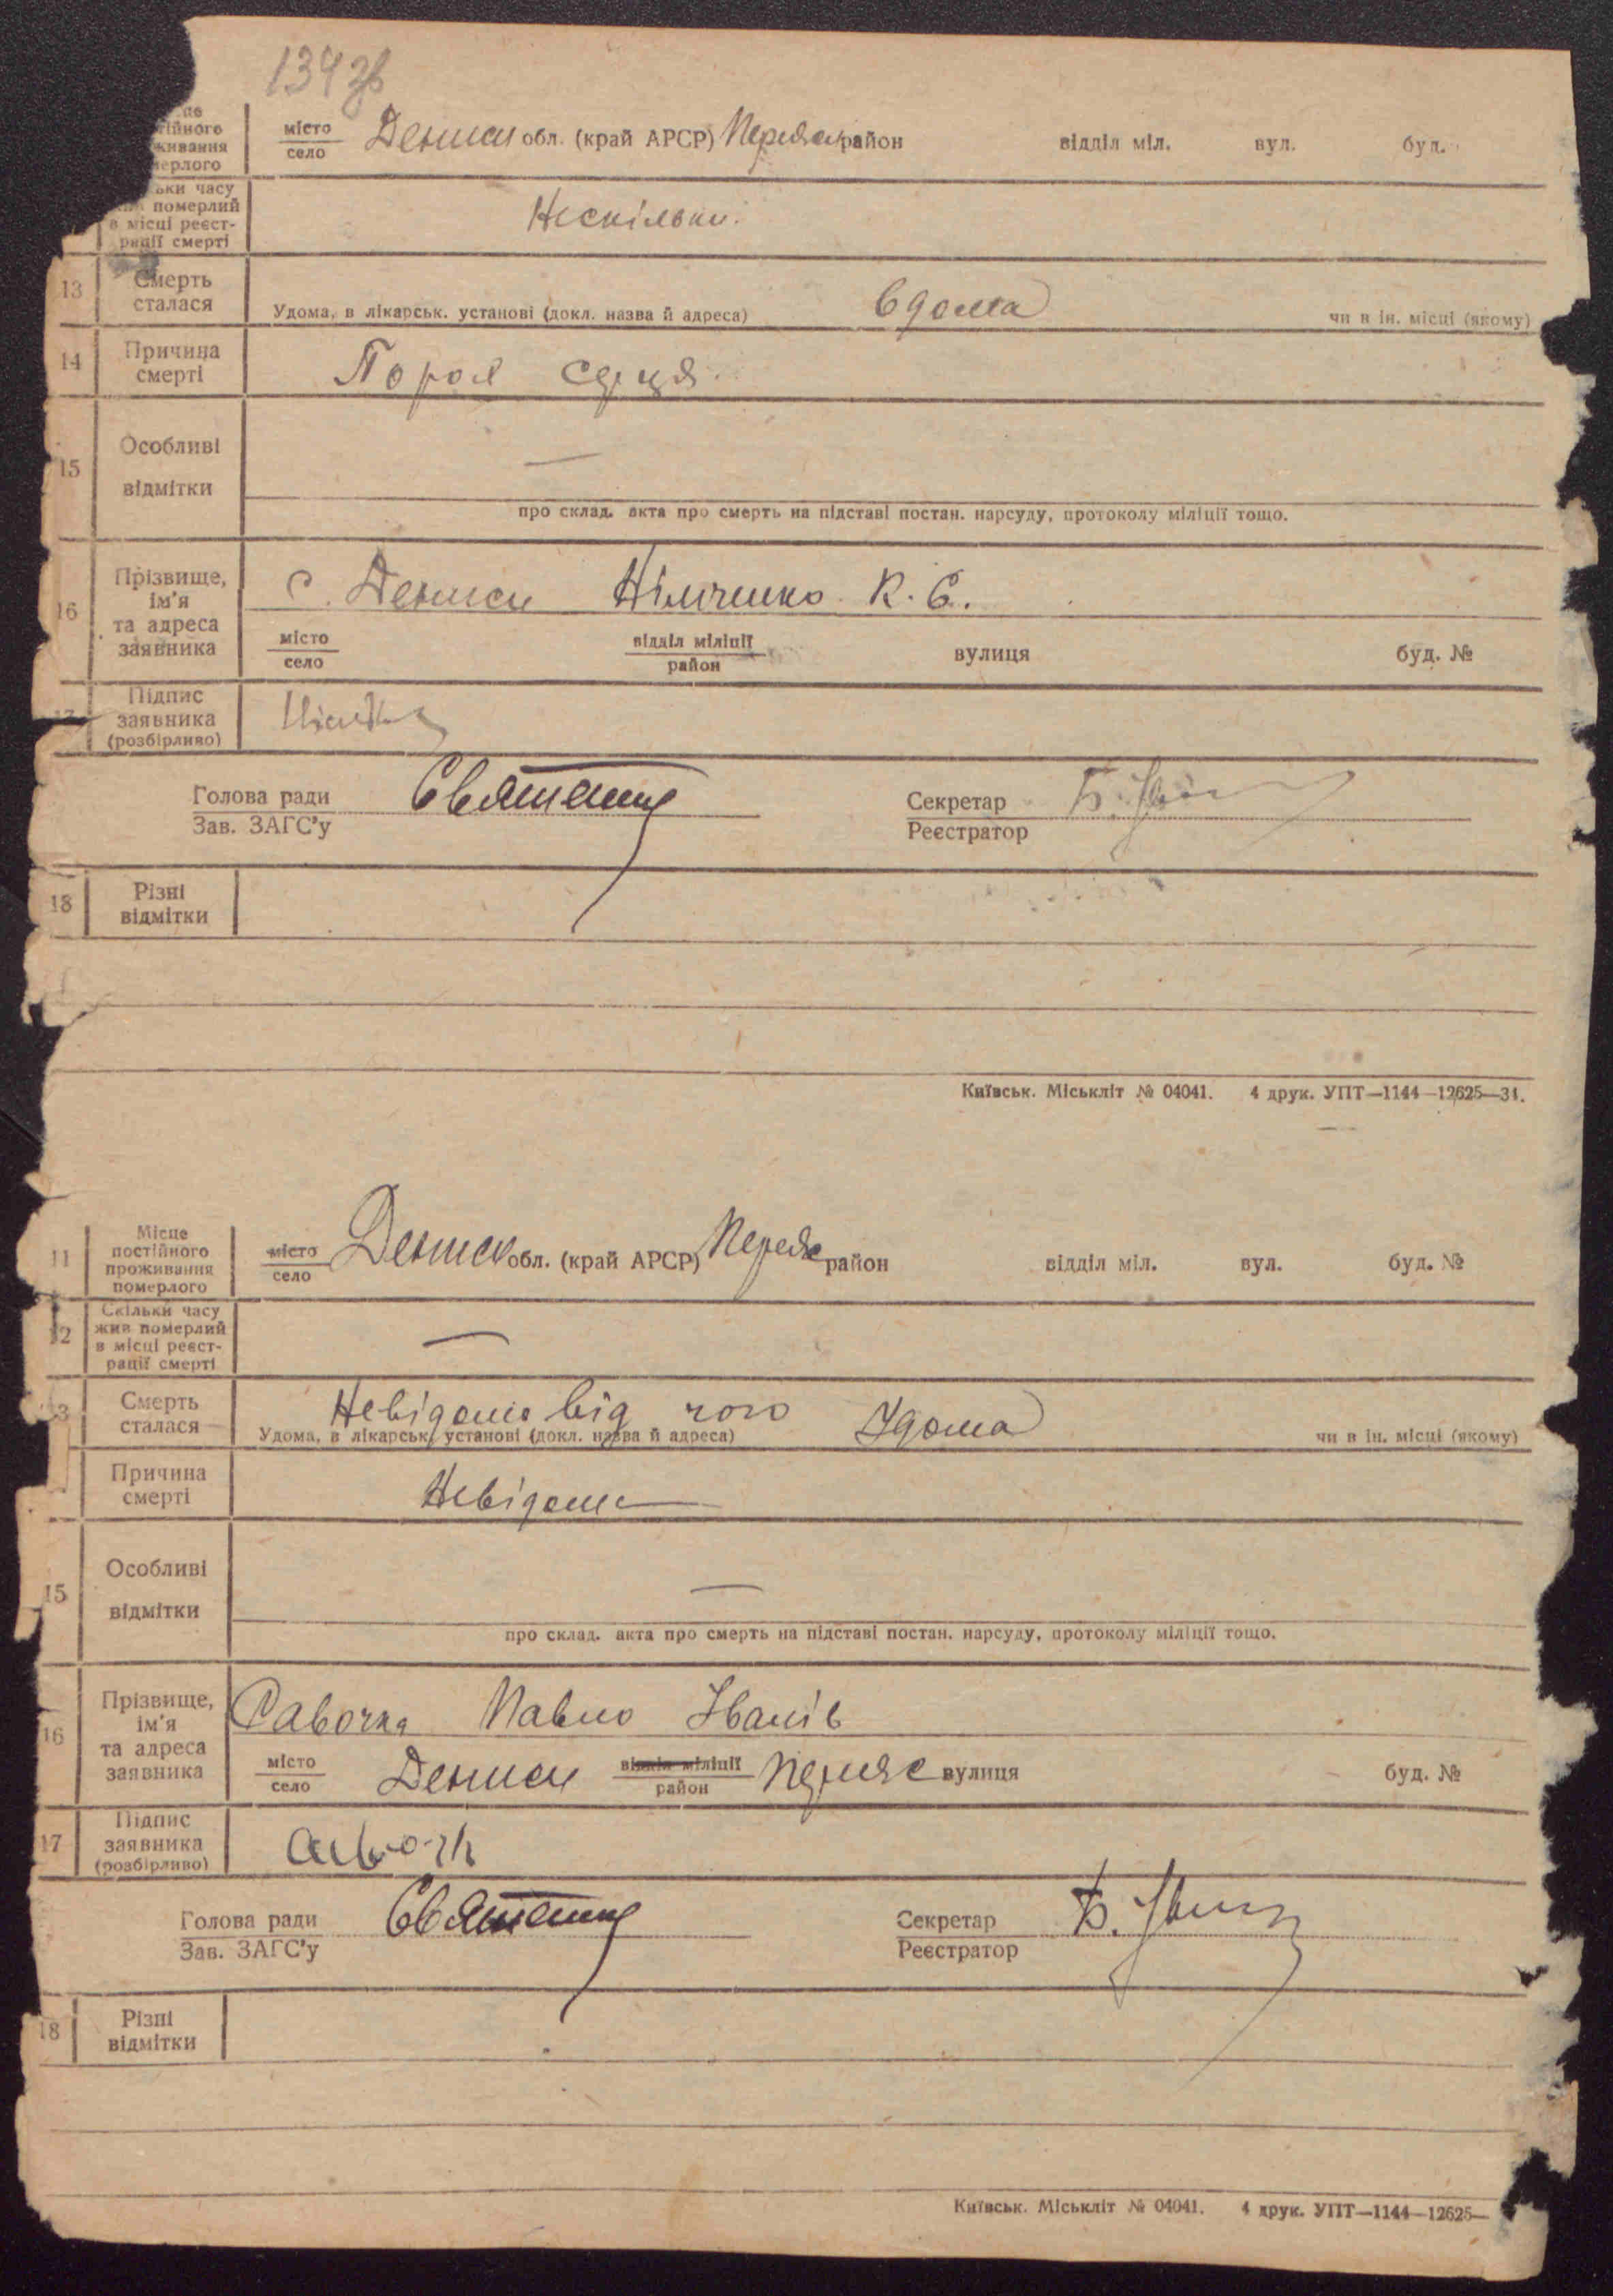 134 зв
постійного проживання померлого
місто село Дениси обл. (край АРСР) Переяс район відділ міл. вул. буд.
часу померлий в місці реєстрації смерті
Нескільки.
13 Смерть сталася Удома, в лікарськ. установі (докл. назва й адреса) вдома чи в ін. місці (якому)
14 Причина смерті Порок серця
15 Особливі відмітки —
про склад. акта про смерть на підставі постан. нарсуду, протоколу міліції тощо.
16 Прізвище, ім'я та адреса заявника
с. Дениси Німченко К. Є.
місто село відділ міліції район вулиця буд. №
17 Підпис заявника (розбірливо)
Голова ради Зав. ЗАГС'у Секретар Реєстратор
18 Різні відмітки
Київськ. Міськліт № 04041. 4 друк. УПТ—1144—12625—31.
11 Місце постійного проживання померлого
місто село Дениси обл. (край АРСР) Переяс район відділ міл. вул. буд. №
12 Скільки часу жив померлий в місці реєстрації смерті —
13 Смерть сталася Невідомо від чого Удома
Удома, в лікарськ. установі (докл. назва й адреса) чи в ін. місці (якому)
Причина смерті Невідоме
15 Особливі відмітки —
про склад. акта про смерть на підставі постан. нарсуду, протоколу міліції тощо.
16 Прізвище, ім'я та адреса заявника
Савочка Павло Іванів
місто село Дениси відділ міліції район Переяс вулиця буд. №
17 Підпис заявника (розбірливо)
Голова ради Зав. ЗАГС'у Секретар Реєстратор
18 Різні відмітки
Київськ. Міськліт № 04041. 4 друк. УПТ—1144—12625—